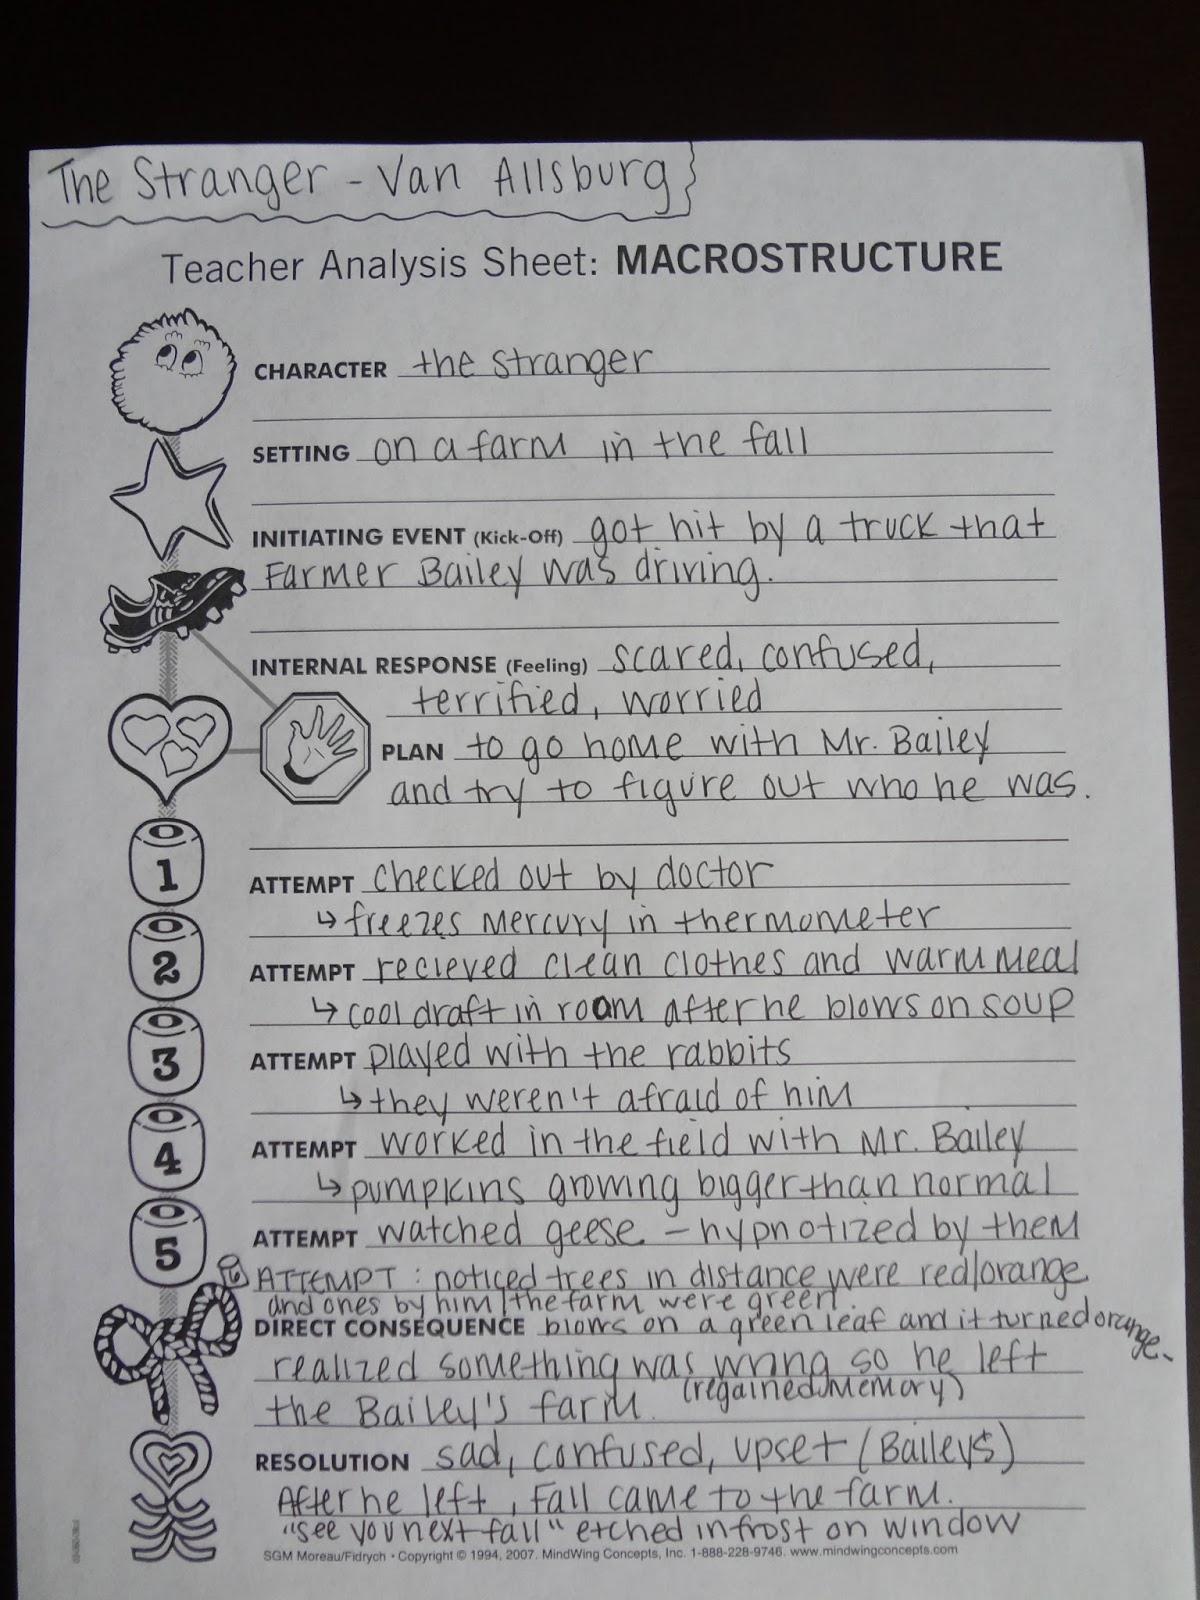 The Stranger - Van Allsburg
Teacher Analysis Sheet: MACROSTRUCTURE
CHARACTER the stranger
SETTING on a farm in the fall
INITIATING EVENT (Kick-Off) got hit by a truck that
Farmer Bailey was driving.
INTERNAL RESPONSE (Feeling) scared, confused,
terrified, worried
PLAN to go home with Mr. Bailey
and try to figure out who he was.
1
ATTEMPT checked out by doctor
↳ freezes mercury in thermometer
2
ATTEMPT recieved clean clothes and warm meal
↳ cool draft in room after he blows on soup
3
ATTEMPT played with the rabbits
↳ they weren't afraid of him
4
ATTEMPT worked in the field with Mr. Bailey
↳ pumpkins growing bigger than normal
5
ATTEMPT watched geese - hypnotized by them
6 ATTEMPT: noticed trees in distance were red/orange
and ones by him/the farm were green.
DIRECT CONSEQUENCE blows on a green leaf and it turned orange.
realized something was wrong so he left
the Bailey's farm. (regained memory)
RESOLUTION sad, confused, upset (Baileys)
After he left, Fall came to the farm.
"see you next fall" etched in frost on window
SGM Moreau/Fidrych • Copyright © 1994, 2007. MindWing Concepts, Inc. 1-888-228-9746. www.mindwingconcepts.com